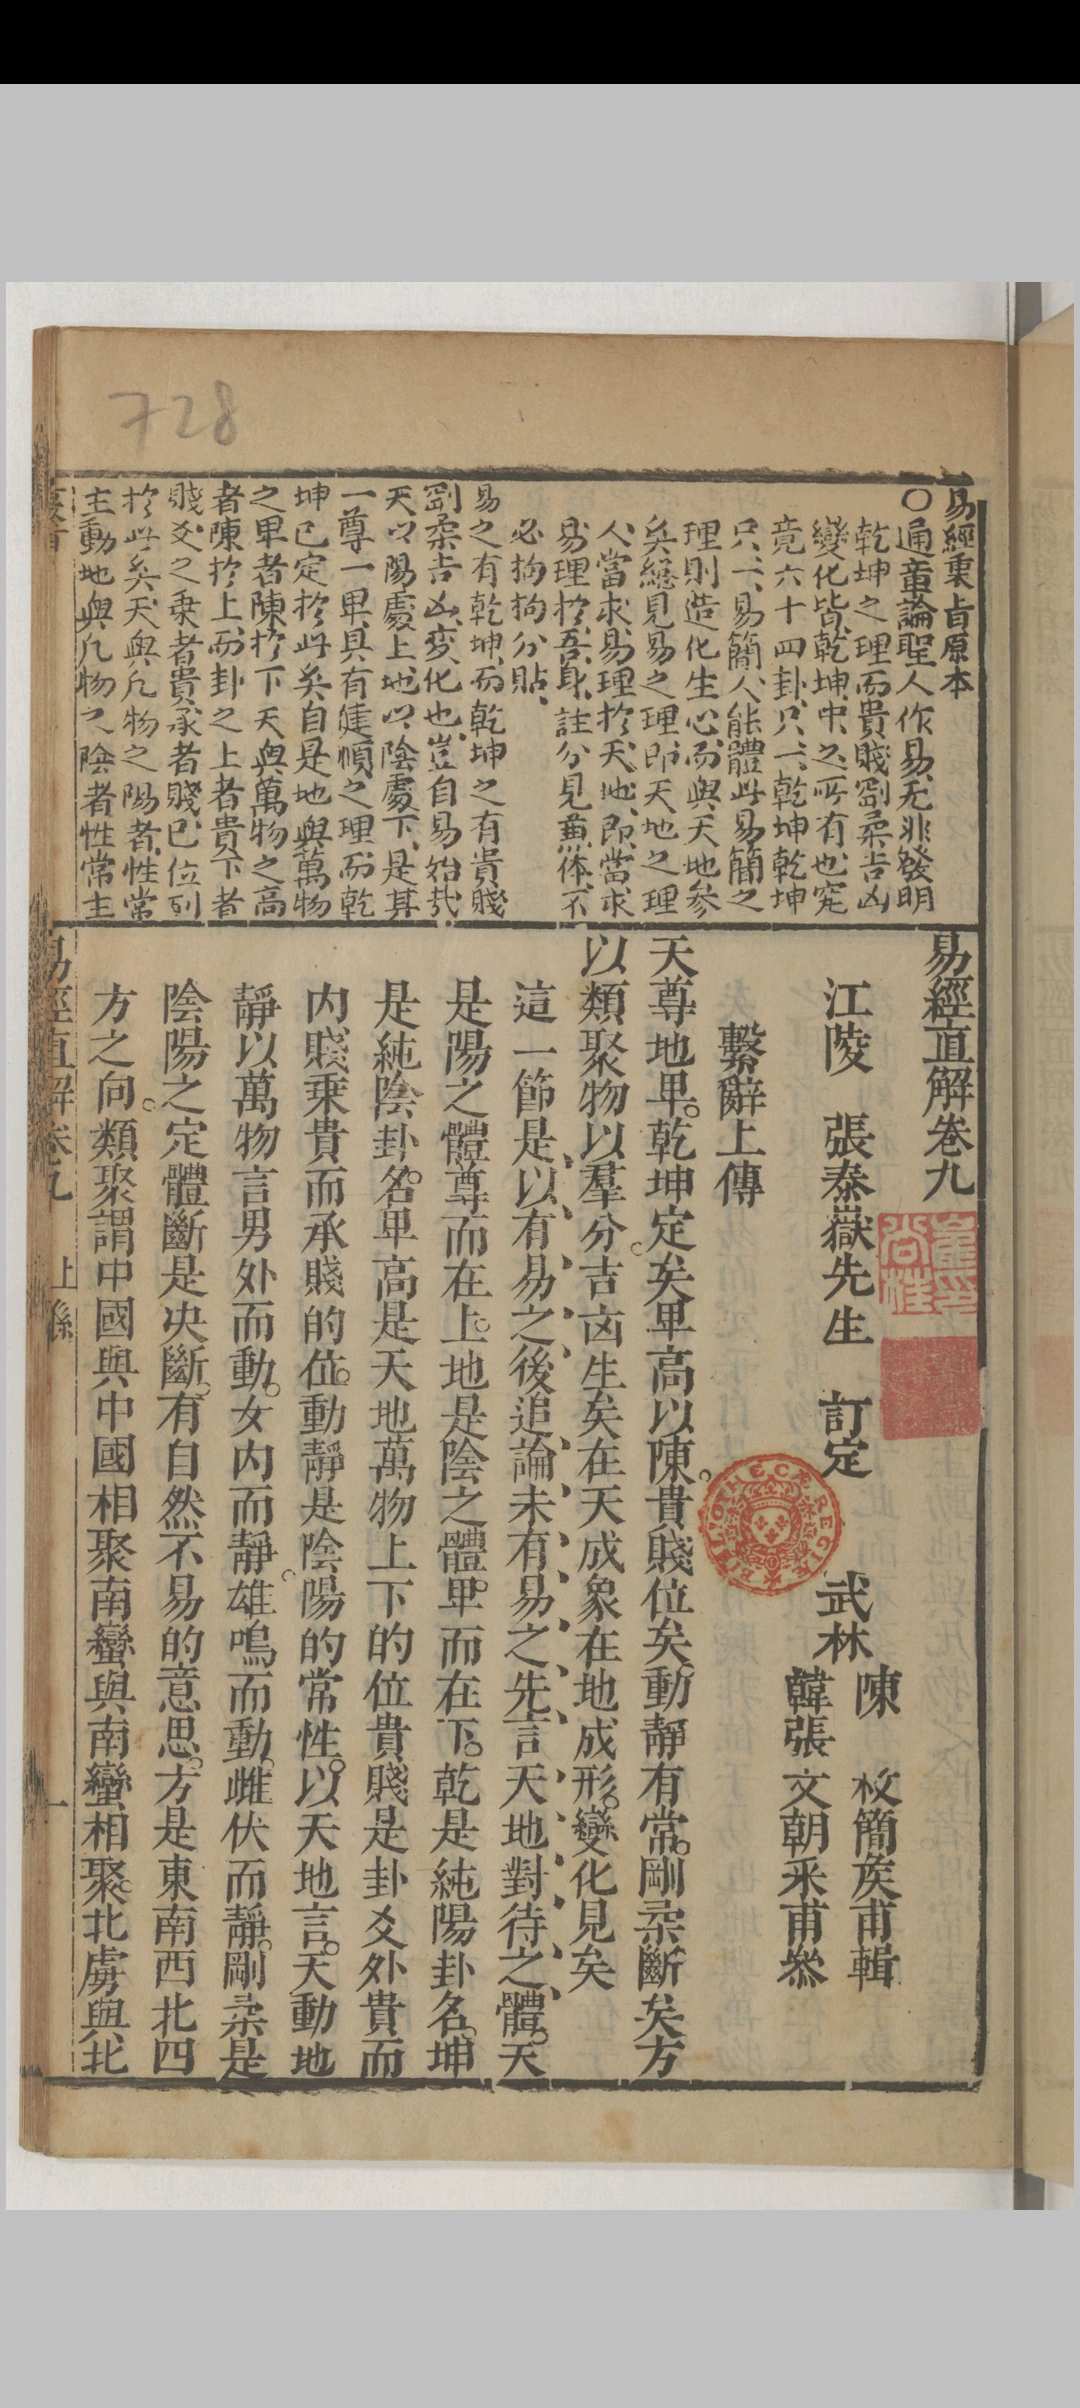 728
易經衷旨原本
○通章論聖人作易无非發明
乾坤之理而貴賤剛柔吉凶
變化皆乾坤中之所有也究
竟六十四卦只一乾坤乾坤
只一易簡人能體此易簡之
理則造化生心而與天地參
矣總見易之理即天地之理
人當求易理於天地即當求
易理於吾身註分見兼体不
必拘拘分貼
易之有乾坤而乾坤之有貴賤
剛柔吉凶変化也豈自易始哉
天以陽處上地以陰處下是其
一尊一卑具有健順之理而乾
坤已定於此矣自是地與萬物
之卑者陳於下天與萬物之高
者陳於上而卦之上者貴下者
賤爻之乗者貴承者賤已位列
於此矣天與凡物之陽者性常
主動地與凡物之陰者性常主
易經直解卷九
江陵 張泰嶽先生 訂定
武林
陳 枚簡矦甫輯
韓張 文朝采甫叅
繫辭上傳
天尊地卑。乾坤定矣卑高以陳。貴賤位矣。動靜有常。剛柔斷矣方
以類聚物以羣分。吉凶生矣在天成象在地成形。變化見矣
這一節是以有易之後追論未有易之先言天地對待之體。天
是陽之體尊而在上。地是陰之體。卑而在下。乾是純陽卦名。坤
是純陰卦名。卑高是天地萬物上下的位貴賤是卦爻外貴而
内賤乗貴而承賤的位。動靜是陰陽的常性。以天地言。天動地
靜以萬物言男外而動。女内而靜。雄鳴而動。雌伏而靜。剛柔是
陰陽之定體斷是决斷。有自然不易的意思。方是東南西北四
方之向。類聚謂中國與中國相聚南蠻與南蠻相聚。北虜與北
易經直解卷九 上繫 一